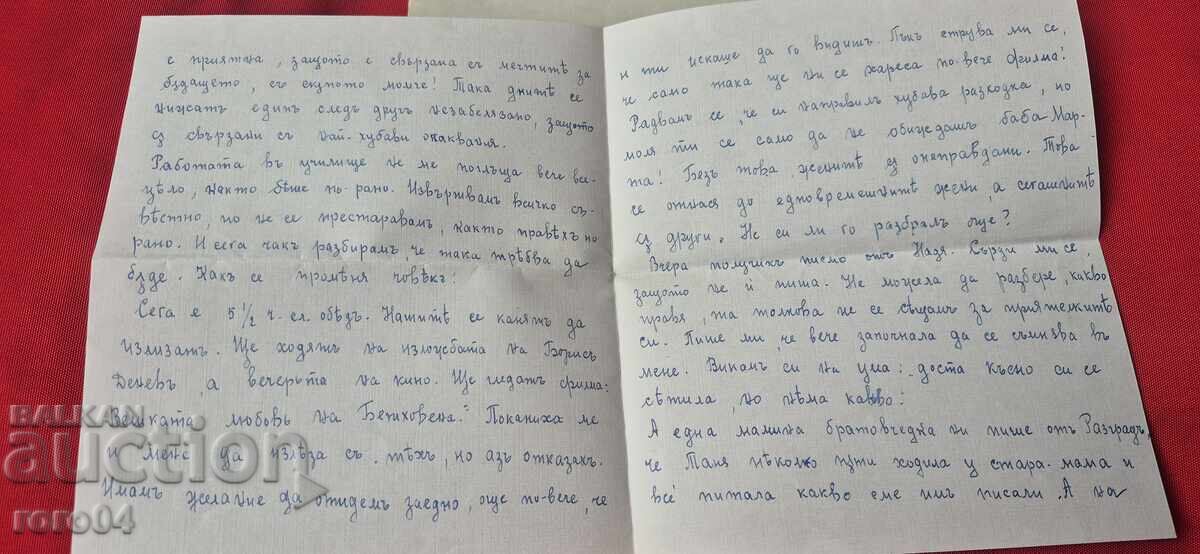 е приятна, защото е свързана съ мечтитѣ за
бѫдащето, съ скѫпото момче! Така днитѣ се
нижатъ единъ следъ другъ незабелязано, защото
сѫ свързани съ най-хубави очаквания.
Работата въ училище не ме поглъща вече все-
цѣло, както бѣше по-рано. Извършвамъ всичко съ-
вѣстно, но не се престаравамъ, както правѣхъ по
рано. И сега чакъ разбирамъ, че така трѣбва да
бѫде. Какъ се промѣня човѣкъ!
Сега е 5 1/2 ч. сл. обѣдъ. Нашитѣ се канятъ да
излизатъ. Ще ходятъ на изложбата на Борисъ
Деневъ, а вечерьта на кино. Ще гледатъ филма:
Великата любовь на Бетховена." Поканиха ме
и мене да излѣза съ тѣхъ, но азъ отказахъ.
Имамъ желание да отидемъ заедно, още по-вече, че
и ти искаше да го видишъ. Пъкъ струва ми се,
че само така ще ни се хареса по-вече филма!
Радвамъ се, че си направилъ хубава разходка, но
моля ти се само да не обиждашъ баба Мар-
та! Безъ това, женитѣ сѫ онеправдани. Това
се отнася до едновремешнитѣ жени, а сегашнитѣ
сѫ други. Не си ли го разбралъ още?
Вчера получихъ писмо отъ Надя. Сърди ми се,
защото не ѝ пиша. Не можела да разбере, какво
правя, та толкова не се сѣщамъ за приятелкитѣ
си. Пише ми, че вече започнала да се съмнѣва въ
мене. Викамъ си на ума: доста късно си се
сѣтила, но нѣма какво!
А една мамина братовчедка ни пише отъ Разградъ,
че Таня нѣколко пѫти ходила у стара-мама и
все питала какво сме имъ писали. А на
BALKAN
auction
roro04